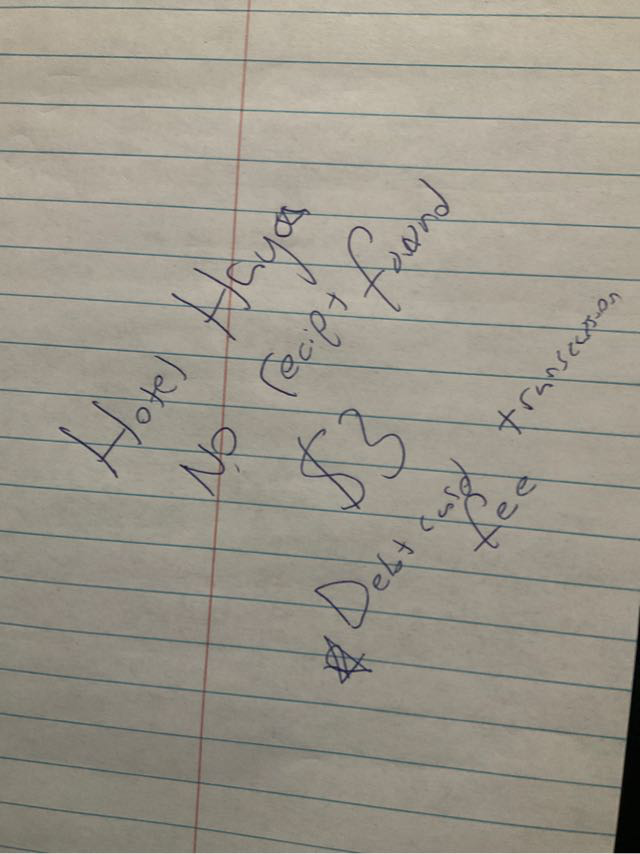 Hotel
No recipt found
$3
☆ Debt card transcation
fee